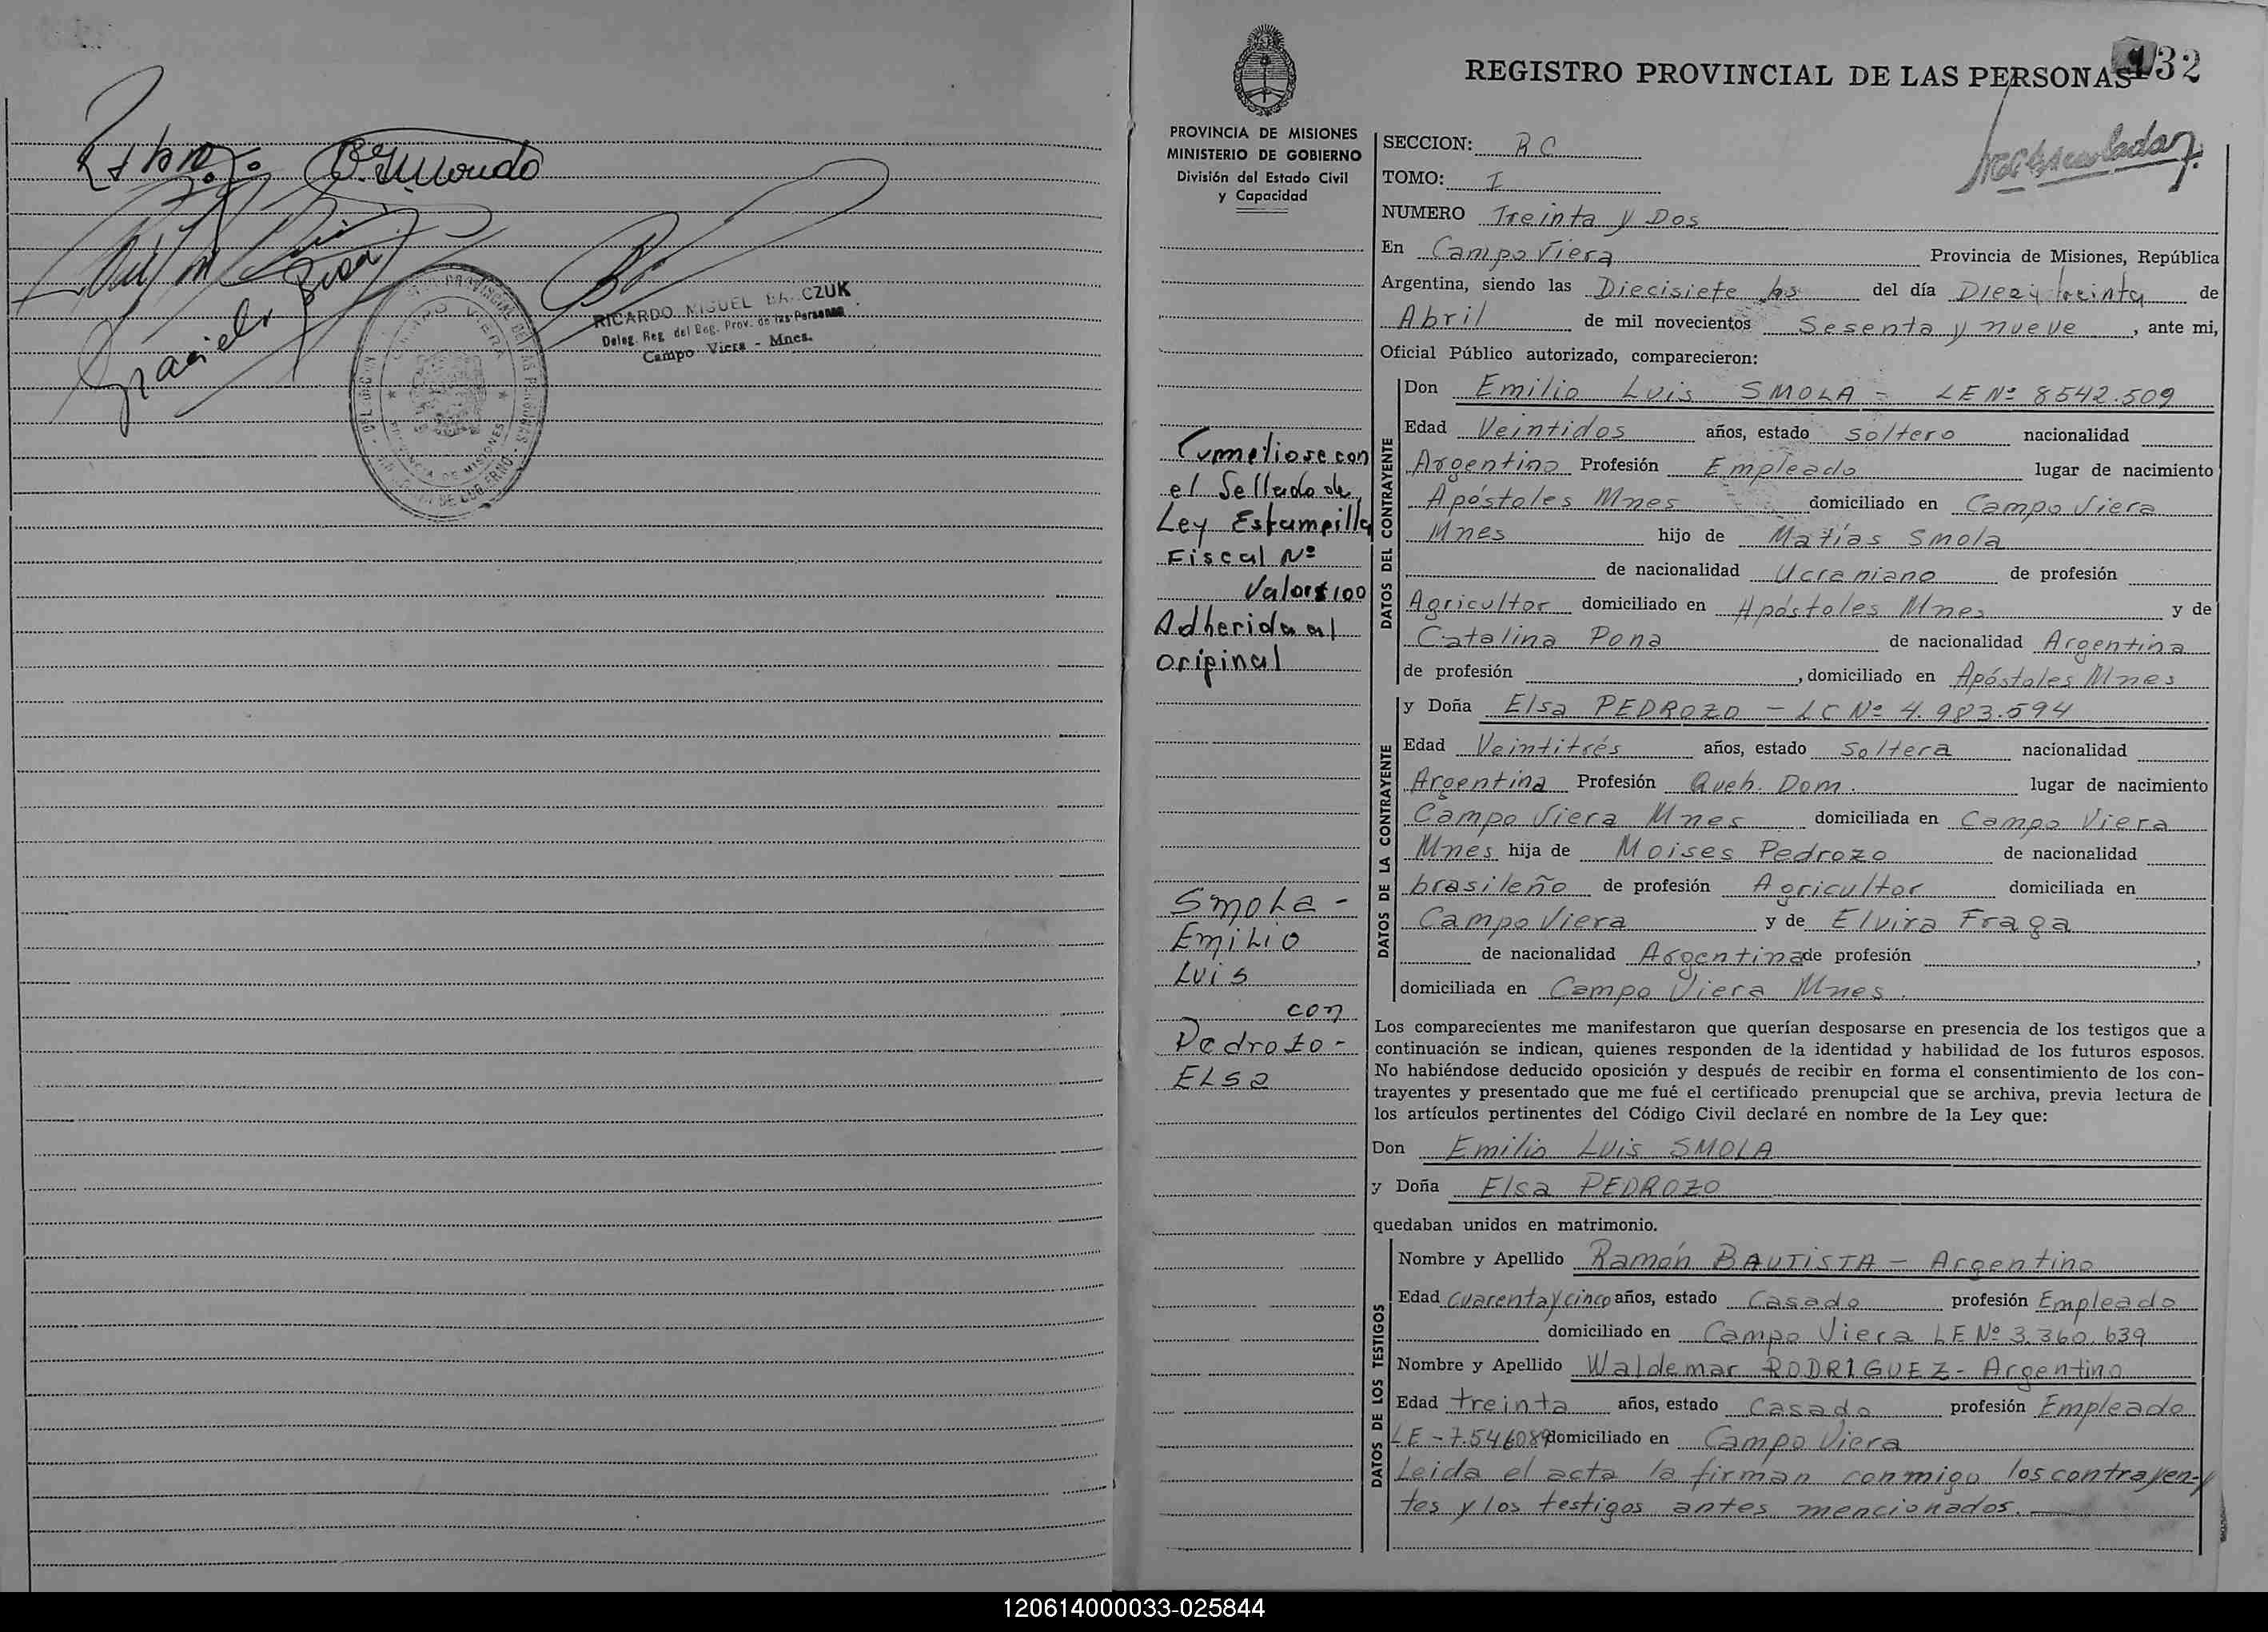 RICARDO MIGUEL
Deleg. Reg. del Reg. Prov. de las Personas
Campo Viera - Mnes.
CAMPO VIERA
PROVINCIA DE MISIONES
REGISTRO PROVINCIAL DE LAS PERSONAS
132
PROVINCIA DE MISIONES
MINISTERIO DE GOBIERNO
División del Estado Civil
y Capacidad
SECCION: RC
TOMO: I
NUMERO Treinta y Dos
En Campo Viera Provincia de Misiones, República
Argentina, siendo las Diecisiete hs del día Diez y treinta de
Abril de mil novecientos Sesenta y nueve, ante mi,
Oficial Público autorizado, comparecieron:
DATOS DEL CONTRAYENTE
Don Emilio Luis SMOLA - LE Nº 8542.509
Edad Veintidos años, estado soltero nacionalidad
Argentino Profesión Empleado lugar de nacimiento
Apóstoles Mnes domiciliado en Campo Viera
Mnes hijo de Matías Smola
de nacionalidad Ucraniano de profesión
Agricultor domiciliado en Apóstoles Mnes y de
Catalina Pona de nacionalidad Argentina
de profesión , domiciliado en Apóstoles Mnes
DATOS DE LA CONTRAYENTE
y Doña Elsa PEDROZO - LC Nº 4.983.594
Edad Veintitrés años, estado Soltera nacionalidad
Argentina Profesión Queh. Dom. lugar de nacimiento
Campo Viera Mnes domiciliada en Campo Viera
Mnes hija de Moises Pedrozo de nacionalidad
brasileño de profesión Agricultor domiciliada en
Campo Viera y de Elvira Fraga
de nacionalidad Argentina de profesión ,
domiciliada en Campo Viera Mnes.
Los comparecientes me manifestaron que querían desposarse en presencia de los testigos que a
continuación se indican, quienes responden de la identidad y habilidad de los futuros esposos.
No habiéndose deducido oposición y después de recibir en forma el consentimiento de los con-
trayentes y presentado que me fué el certificado prenupcial que se archiva, previa lectura de
los artículos pertinentes del Código Civil declaré en nombre de la Ley que:
Don Emilio Luis SMOLA
y Doña Elsa PEDROZO
quedaban unidos en matrimonio.
DATOS DE LOS TESTIGOS
Nombre y Apellido Ramón BAUTISTA - Argentino
Edad Cuarenta y cinco años, estado Casado profesión Empleado
domiciliado en Campo Viera LE Nº 3.360.639
Nombre y Apellido Waldemar RODRIGUEZ - Argentino
Edad treinta años, estado Casado profesión Empleado
LE - 7.546089 domiciliado en Campo Viera
Leida el acta la firman conmigo los contrayen-
tes y los testigos antes mencionados.
Cumpliose con
el Sellado de
Ley Estampilla
Fiscal Nº
Valor $ 100
Adherida al
original
Smola -
Emilio
Luis
con
Pedrozo -
Elsa
120614000033-025844